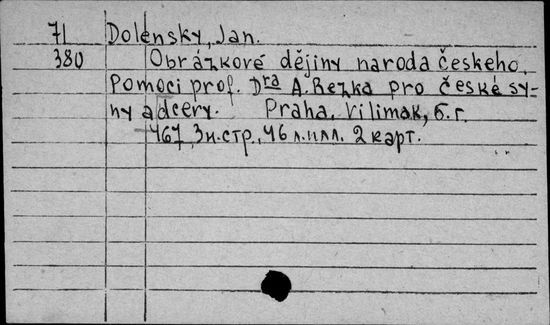 71 Dolensky, Jan.
380 Obrázkové dějiny naroda českeho.
Pomoci prof. Dra A. Rezka pro české sy-
ny a dcery. Praha, Vilimak, б. г.
467, 3н. стр., 46 л. илл. 2 карт.